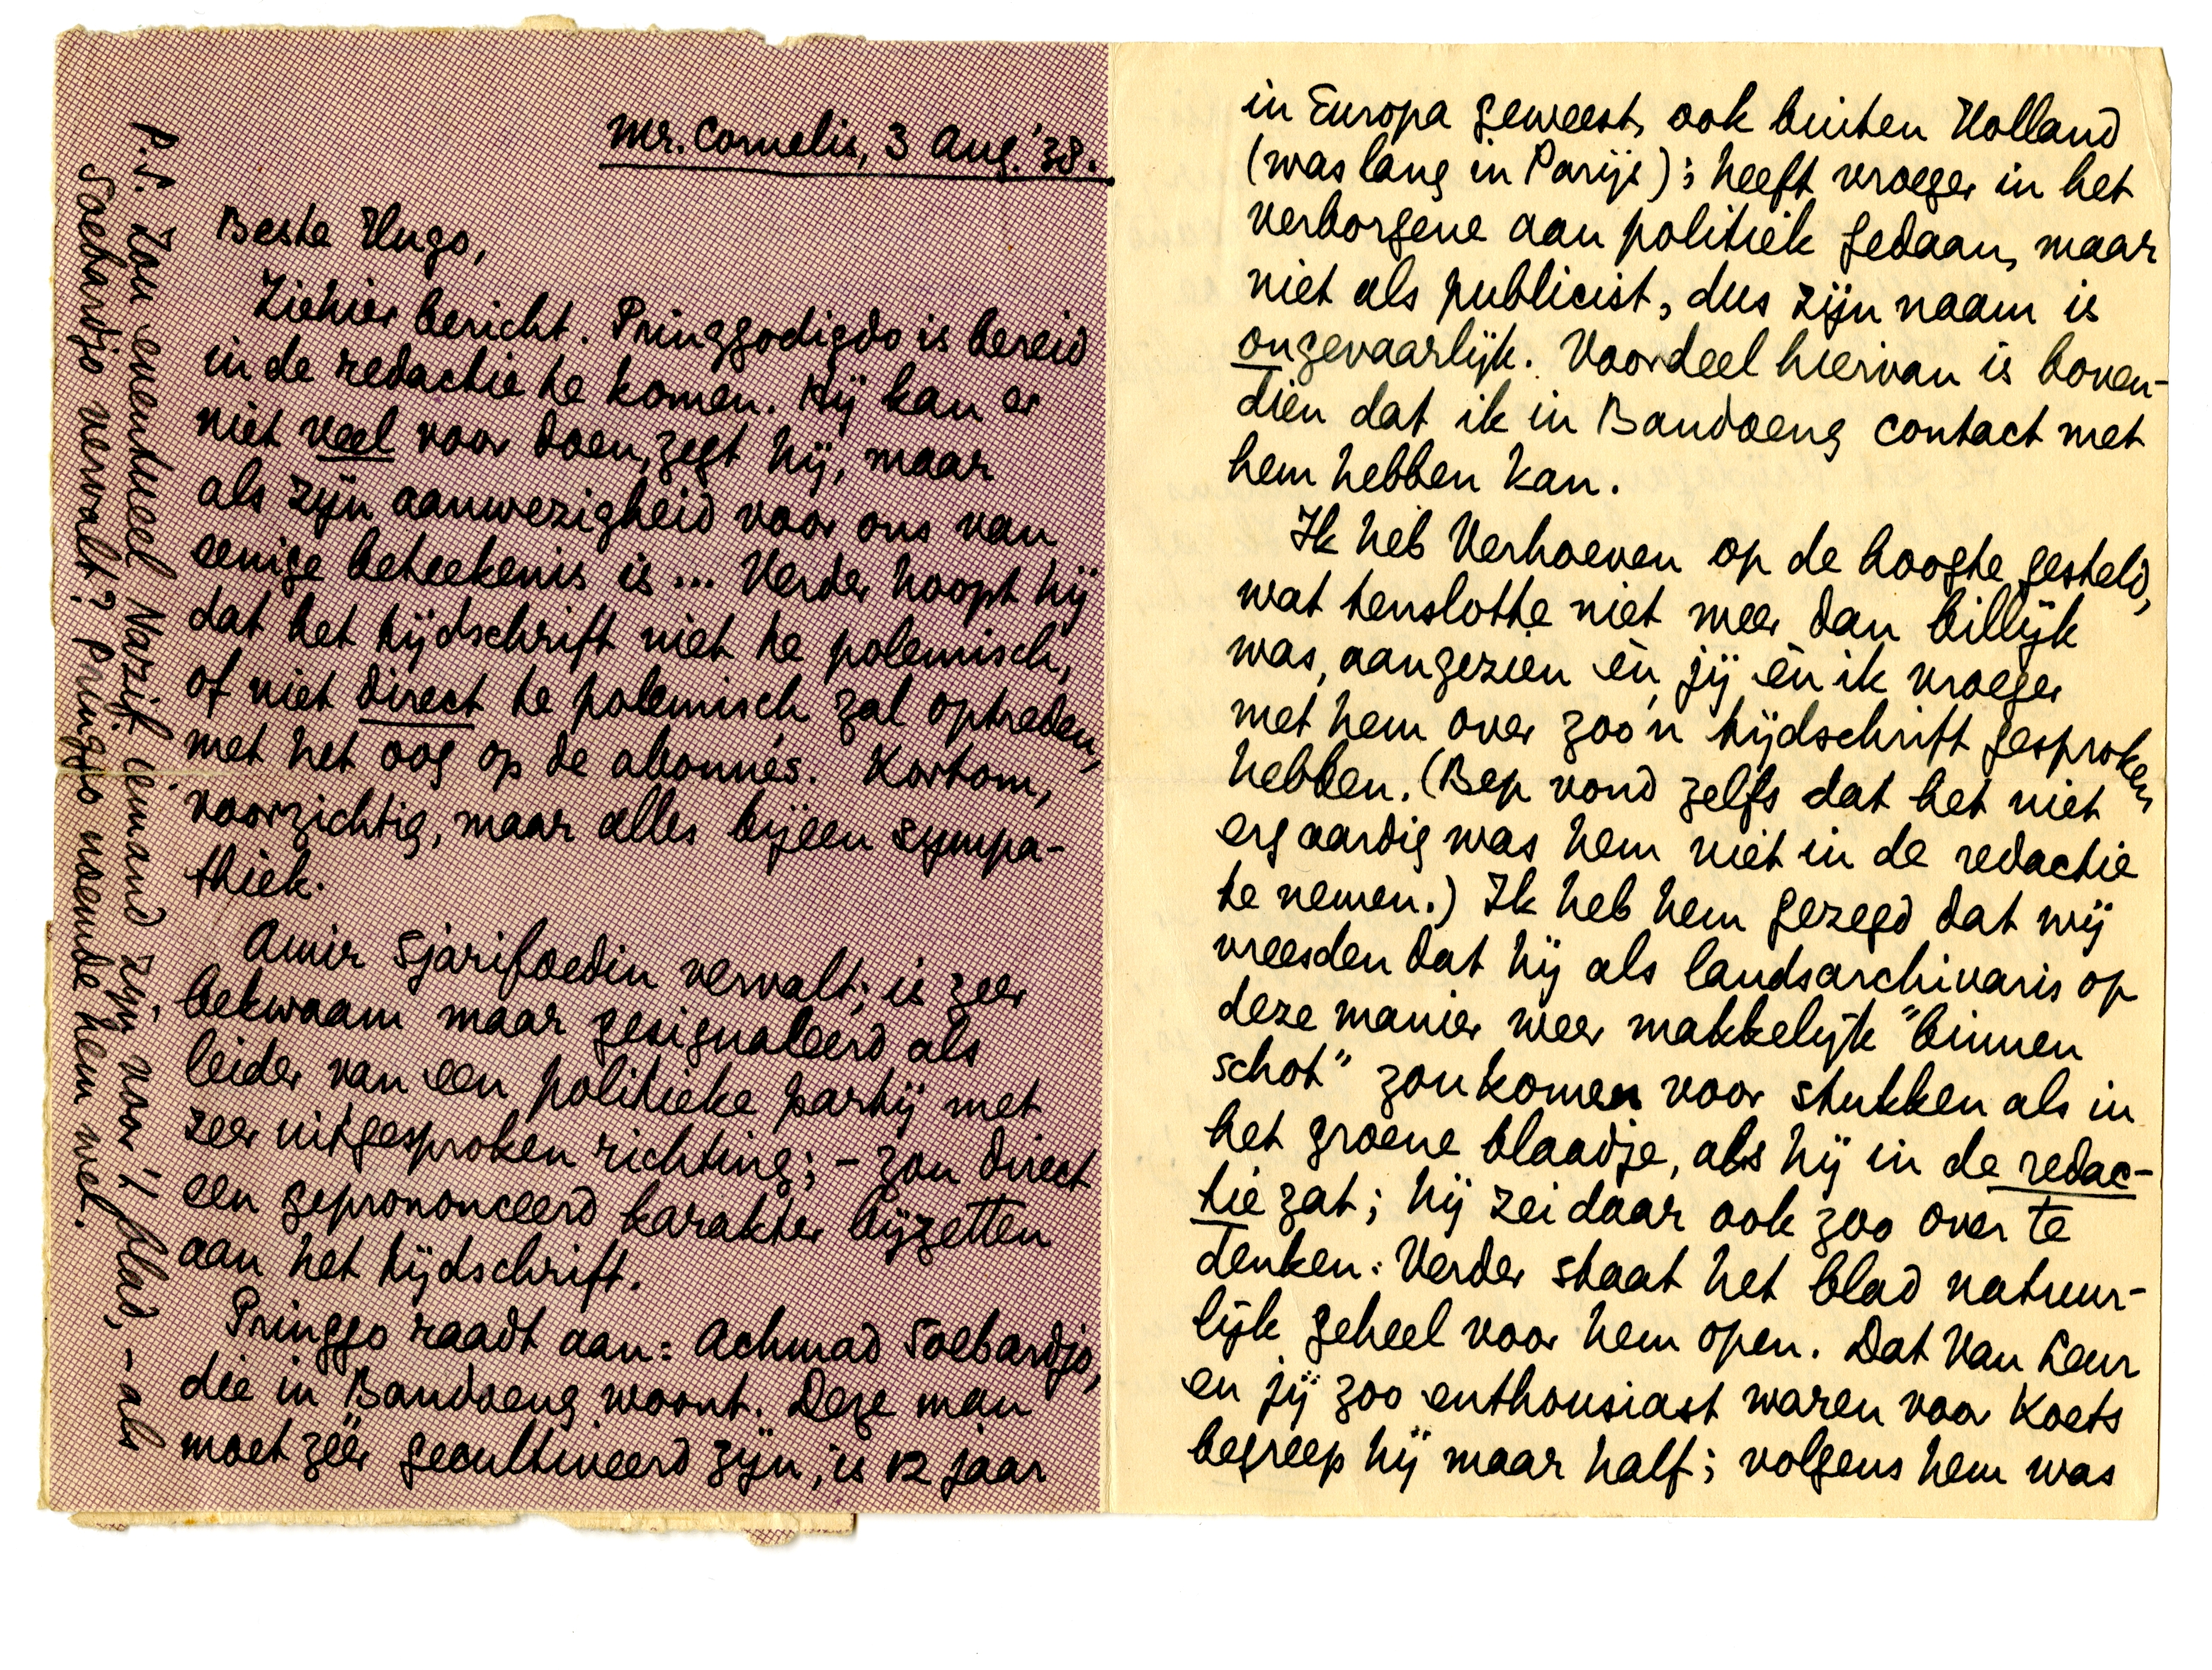 Mr. Cornelis, 3 Aug. '38.
Beste Hugo,
Ziehier bericht. Pringgodigdo is bereid
in de redactie te komen. Hij kan er
niet veel voor doen, zegt hij, maar
als zijn aanwezigheid voor ons van
eenige beteekenis is... Verder hoopt hij
dat het tijdschrift niet te polemisch,
of niet direct te polemisch zal optreden,
met het oog op de abonnés. Kortom,
voorzichtig, maar alles bijeen sympa-
thiek.
Amir Sjarifoedin vervalt; is zeer
bekwaam maar gesignaleerd als
leider van een politieke partij met
zeer uitgesproken richting; - zou direct
een geprononceerd karakter bijzetten
aan het tijdschrift.
Pringgo raadt aan: Achmad Soebardjo,
die in Bandoeng woont. Deze man
moet zéér gecultiveerd zijn, is 12 jaar
P.S. Zou eventueel Nazif iemand zijn voor 't blad, - als
Soebardjo vervalt? Pringgo noemde hem wel.
in Europa geweest, ook buiten Holland
(was lang in Parijs); heeft vroeger in het
verborgene aan politiek gedaan, maar
niet als publicist, dus zijn naam is
ongevaarlijk. Voordeel hiervan is boven-
dien dat ik in Bandoeng contact met
hem hebben kan.
Ik heb Verhoeven op de hoogte gesteld,
wat tenslotte niet meer dan billijk
was, aangezien èn jij èn ik vroeger
met hem over zoo'n tijdschrift gesproken
hebben. (Bep vond zelfs dat het niet
erg aardig was hem niet in de redactie
te nemen.) Ik heb hem gezegd dat wij
vreesden dat hij als landsarchivaris op
deze manier weer makkelijk "binnen
schot" zou komen voor stukken als in
het groene blaadje, als hij in de redac-
tie zat; hij zei daar ook zoo over te
denken. Verder staat het blad natuur-
lijk geheel voor hem open. Dat Van Leur
en jij zoo enthousiast waren voor Koets
begreep hij maar half; volgens hem was